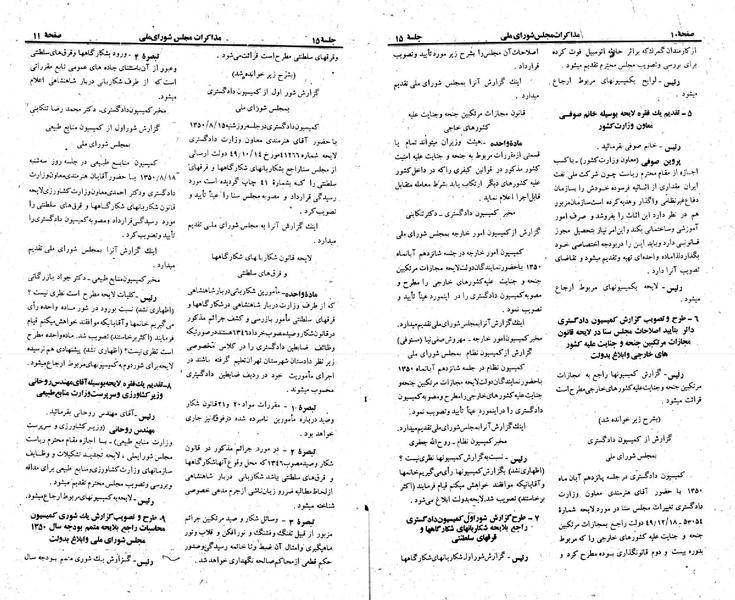 صفحهٔ ۱۰
مذاکرات مجلس شورای ملی
جلسهٔ ۱۵
از کارمندان گمرک که براثر حادثه اتومبیل فوت کرده
برای بررسی و تصویب مجلس محترم تقدیم میشود.
رئیس - لوایح بکمیسیونهای مربوط ارجاع
میشود.
۵ - تقدیم یک فقره لایحه بوسیله خانم صوفی
معاون وزارت کشور
رئیس - خانم صوفی بفرمائید.
پروین صوفی (معاون وزارت کشور) - باکسب
اجازه از مقام محترم ریاست چون شرکت ملی نفت
ایران مقداری از اثاثیه فرسوده خودش را بسازمان
دفاع غیرنظامی واگذار وهدیه کرده است سازمان مزبور
هم در نظر دارد این اثاث را بفروشد و صرف امور
آموزشی وساختمانی بکند واین امر نیاز بتحصیل مجوز
قانونی دارد وباید این را دربودجه اختصاصی خود
بگذارد لذا ماده واحده‌ای تهیه وتقدیم میشود و تقاضای
تصویب آنرا دارد.
رئیس - لایحه بکمیسیونهای مربوط ارجاع
میشود.
۶ - طرح و تصویب گزارش کمیسیون دادگستری
دائر بتأیید اصلاحات مجلس سنا در لایحه قانون
مجازات مرتکبین جنحه و جنایت علیه کشور
های خارجی وابلاغ بدولت
رئیس - گزارش کمیسیونها راجع به مجازات
مرتکبین جنحه وجنایت علیه کشورهای خارجی مطرح است
قرائت میشود.
(بشرح زیر خوانده شد)
گزارش از کمیسیون دادگستری
بمجلس شورای ملی
کمیسیون دادگستری در جلسه پانزدهم آبان ماه
۱۳۵۰ با حضور آقای هنرمندی معاون وزارت
دادگستری تغییرات مجلس سنا در مورد لایحه شماره
۵۳۰۵۴ - ۴۹/۱۲/۱۸ دولت راجع بمجازات مرتکبین
جنحه و جنایت علیه کشورهای خارجی را که مربوط
بدوره بیست و دوم قانونگذاری بوده مطرح کرد و
اصلاحات آن مجلس را بشرح زیر مورد تأیید وتصویب
قرار داد.
اینک گزارش آنرا بمجلس شورای ملی تقدیم
میدارد.
قانون مجازات مرتکبین جنحه وجنایت علیه
کشورهای خارجی
مادهٔ واحده - هیئت وزیران میتواند تمام یا
قسمتی از مقررات مربوط به جنحه و جنایت علیه امنیت
کشور مذکور در قوانین کیفری راکه در داخل کشور
علیه کشورهای دیگر ارتکاب یابد بشرط معامله متقابل
قابل اجرا اعلام نماید.
مخبر کمیسیون دادگستری - دکتر تنکابنی
گزارش از کمیسیون امور خارجه بمجلس شورای ملی
کمیسیون امور خارجه در جلسه شانزدهم آبانماه
۱۳۵۰ با حضور نمایندگان دولت لایحه مجازات مرتکبین
جنحه و جنایت علیه کشورهای خارجی را مطرح و
مصوبه کمیسیون دادگستری را در این مورد عیناً تأیید و
تصویب نمود.
اینک گزارش آنرا بمجلس شورای ملی تقدیم میدارد.
مخبر کمیسیون امور خارجه - مهروش صفی‌نیا (مستوفی)
گزارش از کمیسیون نظام بمجلس شورای ملی
کمیسیون نظام در جلسه شانزدهم آبانماه ۱۳۵۰
باحضور نمایندگان دولت لایحه مجازات مرتکبین جنحه و
جنایت علیه کشورهای خارجی را مطرح ومصوبه کمیسیون
دادگستری را در این مورد عیناً تأیید و تصویب نمود.
اینک گزارش آنرا بمجلس شورای ملی تقدیم میدارد.
مخبر کمیسیون نظام - روح‌الله جعفری
رئیس - نسبت به گزارش کمیسیونها نظری نیست ؟
(اظهاری نشد) بگزارش کمیسیونها رأی می‌گیریم خانمها
و آقایانیکه موافقند خواهش میکنم قیام فرمایند (اکثر
برخاستند) تصویب شد. لایحه بدولت ابلاغ می‌شود.
۷ - طرح گزارش شور اول کمیسیون دادگستری
راجع بلایحه شکاربانهای شکارگاهها و
قرقهای سلطنتی
رئیس - گزارش شور اول شکاربانهای شکارگاهها
جلسهٔ ۱۵
مذاکرات مجلس شورای ملی
صفحهٔ ۱۱
وقرقهای سلطنتی مطرح است قرائت می‌شود.
(بشرح زیر خوانده شد)
گزارش شور اول از کمیسیون دادگستری
بمجلس شورای ملی
کمیسیون دادگستری در جلسه روزشنبه ۱۳۵۰/۸/۱۵
با حضور آقای هنرمندی معاون وزارت دادگستری
لایحه شماره ۴۱۲۶۶ مورخ ۴۹/۱۰/۱۴ دولت ارسالی
از مجلس سنا راجع بشکاربانهای شکارگاهها و قرقهای
سلطنتی را که بشمارهٔ ۴۱ چاپ گردیده است مورد
رسیدگی قرارداد و مصوبه مجلس سنا را عیناً تأیید و
تصویب کرد.
اینک گزارش آنرا به مجلس شورای ملی تقدیم
میدارد.
لایحه قانون شکاربانهای شکارگاهها
و قرقهای سلطنتی
مادهٔ واحده - مأمورین شکاربانی دربار شاهنشاهی
که از طرف وزارت دربار شاهنشاهی در شکارگاهها و
قرقهای سلطنتی مأمور بازرسی و کشف جرائم مذکور
در قانون شکار وصید مصوب خرداد ۱۳۴۶ هستند در صورتیکه
وظائف ضابطین دادگستری را در کلاس مخصوصی
زیر نظر دادستان شهرستان تهران تعلیم گرفته باشند در
اجرای مأموریت خود در ردیف ضابطین دادگستری
محسوب میشوند.
تبصرهٔ ۱ - مقررات مواد ۲۰ و ۲۱ قانون شکار
وصید درباره مأمورین نامبرده شده در فوق نیز جاری
خواهد بود.
تبصرهٔ ۲ - در مورد جرائم مذکور در قانون
شکار وصید مصوب ۱۳۴۶ که محل وقوع آنها شکارگاهها و
قرقهای سلطنتی باشد شکاربانی دربار شاهنشاهی
از لحاظ مطالبه ضرر و زیان ناشی از جرم مدعی خصوصی
شناخته میشود.
تبصرهٔ ۳ - وسائل شکار و صید مرتکبین جرائم
مزبور از قبیل تفنگ و فشنگ و نورافکن و قلاب وتور
ماهیگیری و امثال آن ضبط وتا خاتمه رسیدگی وصدور
حکم قطعی از محاکم صالحه نگاهداری خواهد شد.
تبصرهٔ ۴ - ورود بشکارگاهها وقرق‌های سلطنتی
وعبور از آن باستثنای جاده های عمومی تابع مقرراتی
است که از طرف شکاربانی دربار شاهنشاهی اعلام
میشود.
مخبر کمیسیون دادگستری - دکتر محمد رضا تنکابنی
گزارش شور اول از کمیسیون منابع طبیعی
بمجلس شورای ملی
کمیسیون منابع طبیعی در جلسه روز سه‌شنبه
۱۳۵۰/۸/۱۸ با حضور آقایان هنرمندی معاون وزارت
دادگستری و دکتر احمدی معاون وزارت کشاورزی لایحه
شکاربانهای شکارگاهها و قرق‌های سلطنتی را مورد
رسیدگی قرارداد و مصوبه کمیسیون دادگستری را عیناً
تأیید و تصویب کرد.
اینک گزارش آنرا بمجلس شورای ملی تقدیم
میدارد.
مخبر کمیسیون منابع طبیعی - دکتر جواد بازرگانی
رئیس - کلیات لایحه مطرح است نظری نیست ؟
(اظهاری نشد) نسبت بورود در شور ماده واحده رأی
می‌گیریم خانمها و آقایانیکه موافقند خواهش میکنم قیام
فرمایند (اکثر برخاستند) تصویب شد. ماده واحده مطرح
است نظری نیست؟ (اظهاری نشد) پیشنهادی هم نرسیده
لایحه برای شور دوم به کمیسیونهای مربوط ارجاع میشود.
۸ - تقدیم یک فقره لایحه بوسیله آقای مهندس روحانی
وزیر کشاورزی و سرپرست وزارت منابع طبیعی
رئیس - آقای مهندس روحانی بفرمائید.
مهندس روحانی (وزیر کشاورزی و سرپرست
وزارت منابع طبیعی) - با اجازه مقام محترم ریاست
مجلس شورایملی، لایحه تجدید تشکیلات و وظایف
سازمانهای وزارت کشاورزی و منابع طبیعی برای مداقه
وبررسی و تصویب مجلس محترم تقدیم میشود.
رئیس - لایحه به کمیسیونهای مربوط ارجاع میشود.
۹ - طرح و تصویب گزارش یک شوری کمیسیون
محاسبات راجع بلایحه متمم بودجه سال ۱۳۵۰
مجلس شورای ملی وابلاغ بدولت
رئیس - گزارش یک شوری متمم بودجه سال